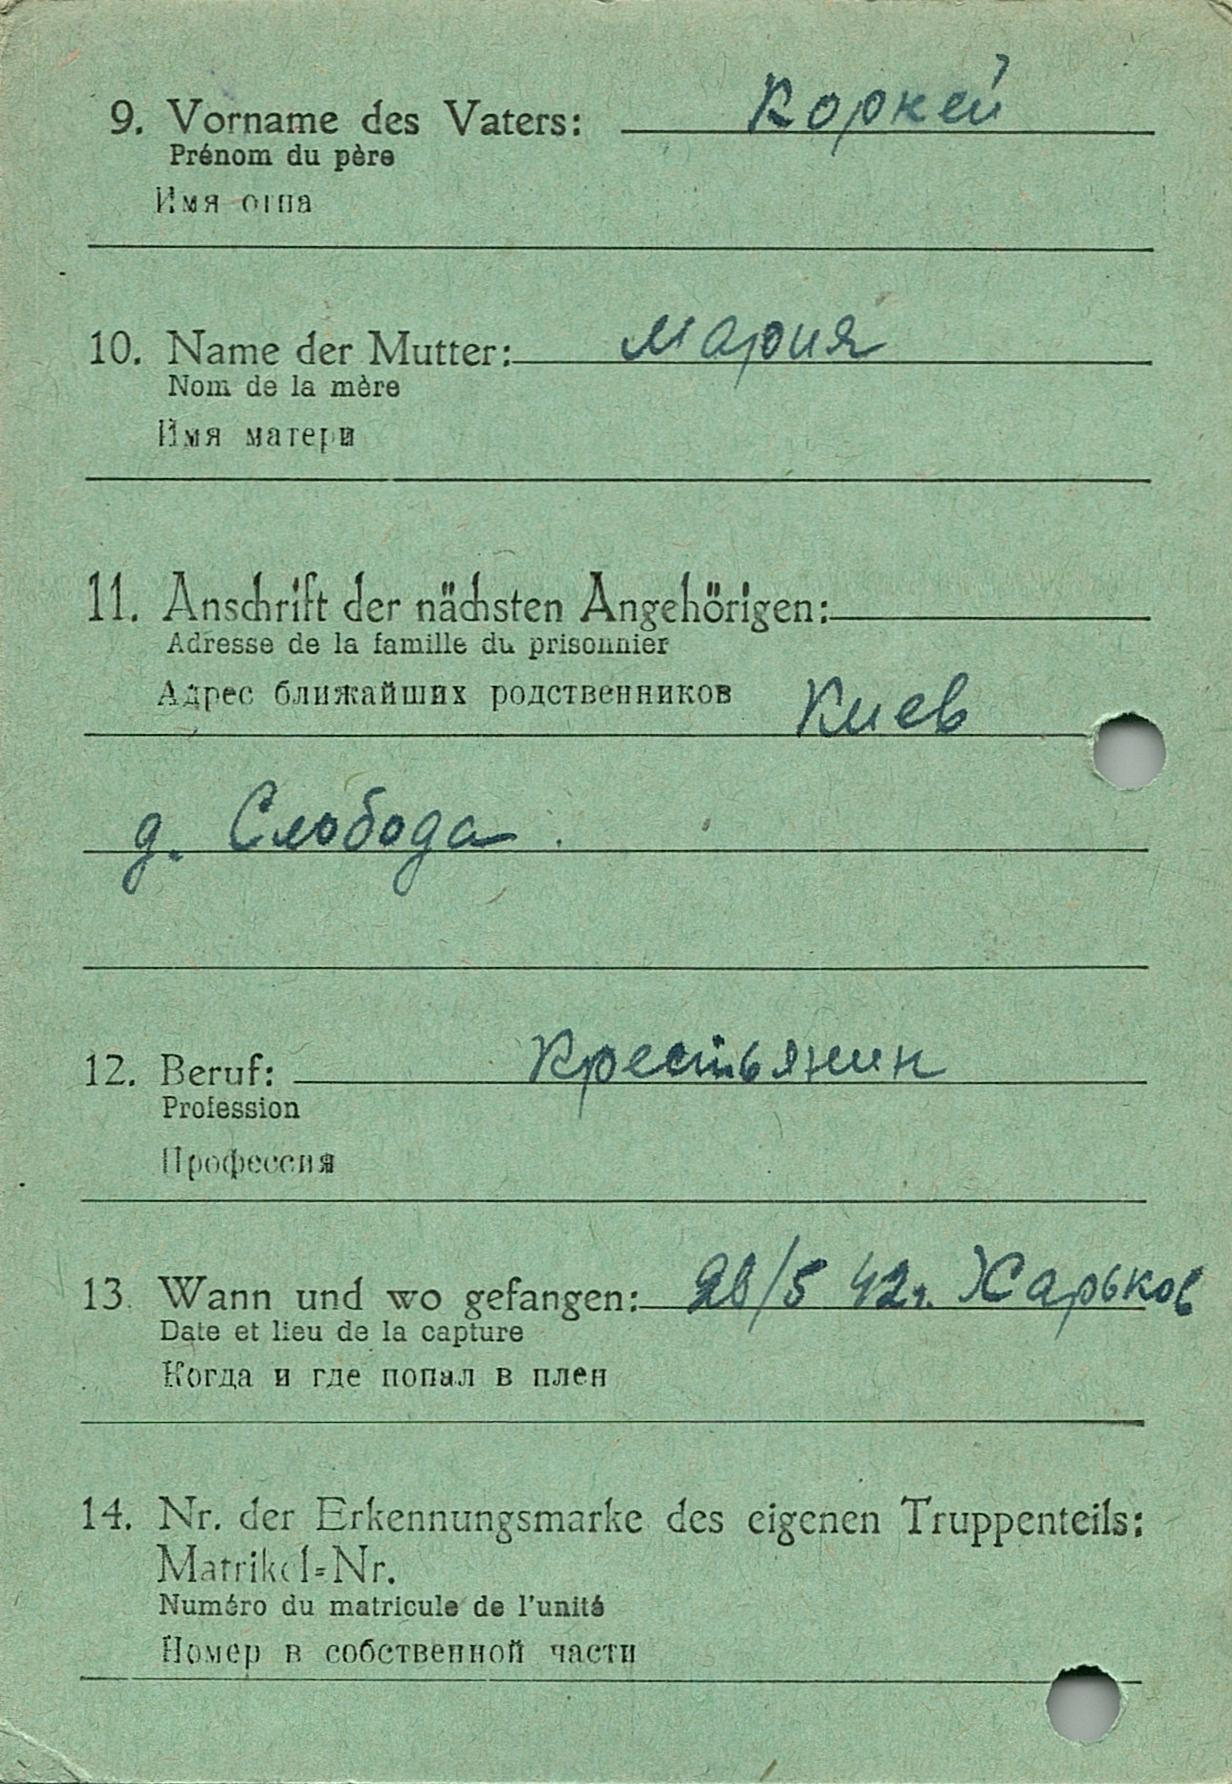 9. Vorname des Vaters: Коркей
Prénom du père
Имя отца
10. Name der Mutter: Мария
Nom de la mère
Имя матери
11. Anschrift der nächsten Angehörigen:
Adresse de la famille du prisonnier
Адрес ближайших родственников Киев
д. Слобода
12. Beruf: Крестьянин
Profession
Профессия
13. Wann und wo gefangen: 28/5 42г. Харьков
Date et lieu de la capture
Когда и где попал в плен
14. Nr. der Erkennungsmarke des eigenen Truppenteils:
Matrikel=Nr.
Numéro du matricule de l'unité
Номер в собственной части